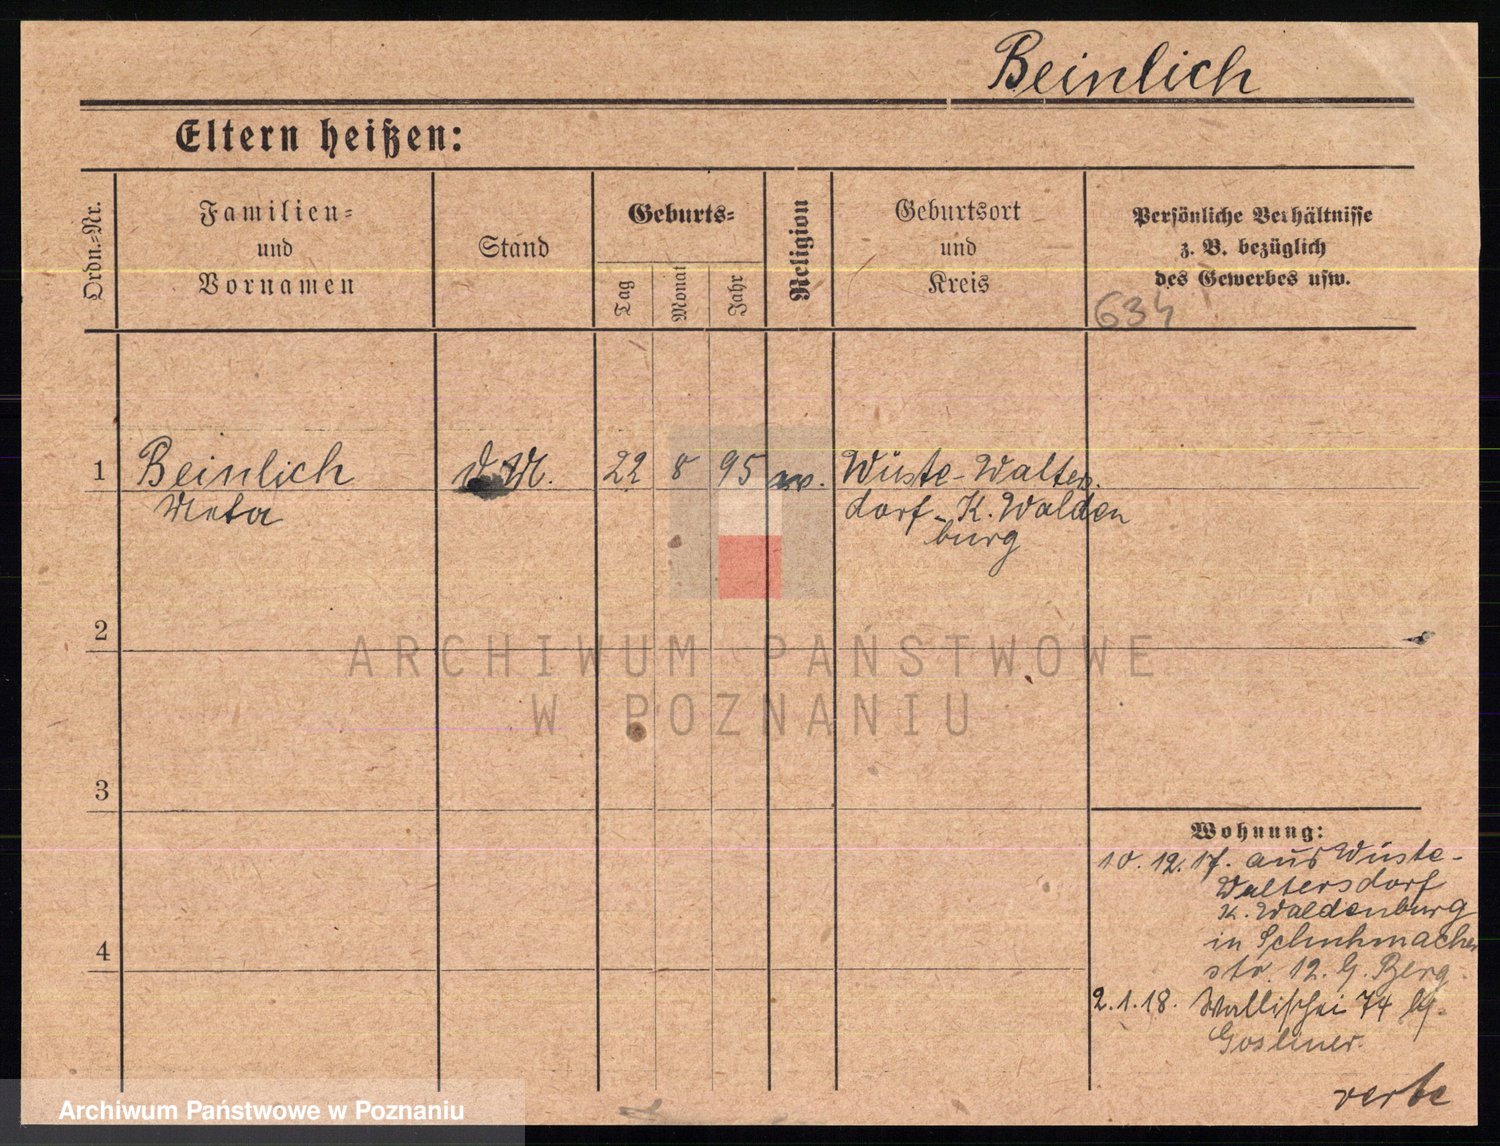 Beinlich
Eltern heißen:
Ordn.-Nr.
Familien-
und
Vornamen
Stand
Geburts-
Tag
Monat
Jahr
Religion
Geburtsort
und
Kreis
Persönliche Verhältnisse
z. B. bezüglich
des Gewerbes usw.
634
1 Beinlich 22 8 95 Wüste-Walters.
Meta dorf - K. Walden
burg
2
3
4
Wohnung:
10. 12. 17. aus Wüste-
Waltersdorf
K. Waldenburg
in Schuhmacher
str. 12. G. Berg.
2. 1. 18. Wallischei 74
Gosliner.
ARCHIWUM PAŃSTWOWE
W POZNANIU
Archiwum Państwowe w Poznaniu